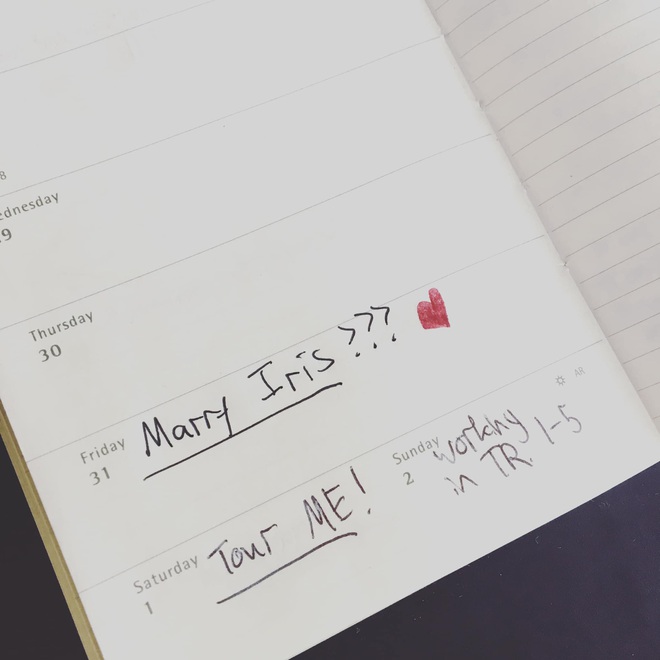 8
ednesday
9
Thursday
30
Friday
31
Marry Iris???
Saturday
1
Tour ME!
Sunday
2
working
in TR 1-5
AR